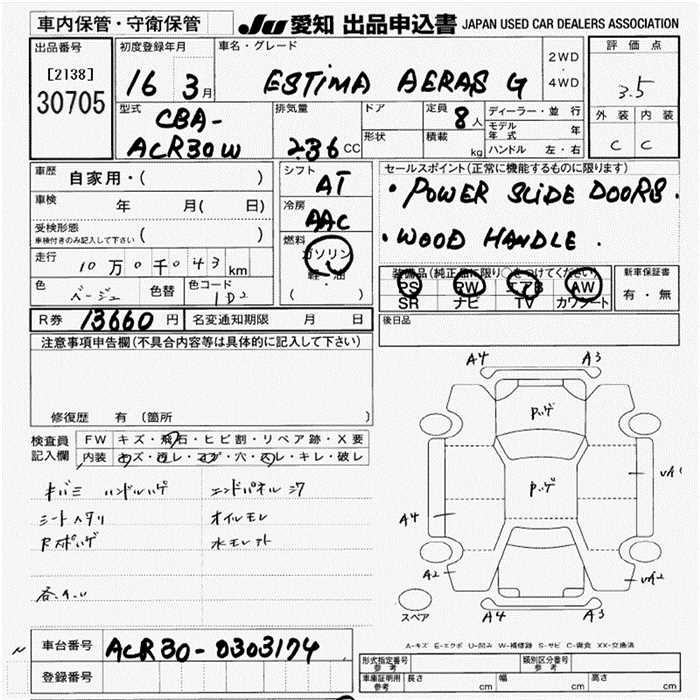 車内保管・守衛保管
JU 愛知 出品申込書 JAPAN USED CAR DEALERS ASSOCIATION
出品番号
[2138]
30705
初度登録年月
16 3月
車名・グレード
ESTIMA AERAS G
2WD
4WD
評価点
3.5
型式
CBA-
ACR30W
排気量
2.36 CC
ドア
形状
定員
8人
積載
kg
ディーラー・並行
モデル年式 年
ハンドル 左・右
外装 内装
C C
車歴 自家用・( )
車検 年 月( 日)
受検形態
車検付きのみ記入して下さい ( )
走行 10万0千043km
色 ベージュ 色替 色コード 1D2
シフト
AT
冷房
AAC
燃料
ガソリン
軽・油
( )
セールスポイント(正常に機能するものに限ります)
・POWER SLIDE DOORS.
・WOOD HANDLE.
装備品(純正品に限り○をつけてください)
PS PW エアB AW
SR ナビ TV カワシート
新車保証書
有・無
R券 13660円 名変通知期限 月 日
後日品
注意事項申告欄(不具合内容等は具体的に記入して下さい)
修復歴 有 (箇所
検査員
記入欄
FW キズ・飛石・ヒビ割・リペア跡・X要
内装 キズ・汚レ・コゲ・穴・スレ・キレ・破レ
キバミ ハンドルハゲ エンドパネル
シートヘタリ オイルモレ
Rスポハゲ 水モレ
A4 A3
Pハゲ
Pハゲ
A4
A2
A4 A3
スペア
A-キズ E-エクボ U-凹み W-補修跡 S-サビ C-腐食 XX-交換済
車台番号 ACR30-0303174
登録番号
形式指定番号
参考
類別区分番号
参考
車庫証明用
参考
長さ cm 幅 cm 高さ cm